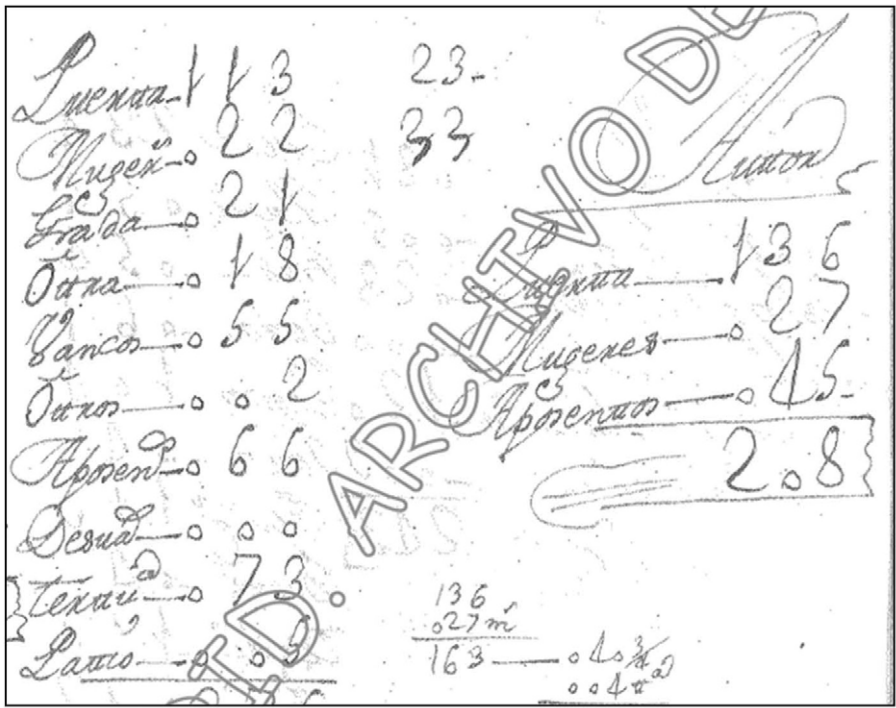 Puerta 113 23.
Muger.s 022 33
Grada 021
Otra 018
Bancos 055
Otros 002
Aposen.s 066
Desvan 000
Tertu.a 073
Patio 003
Autor
Puerta 136
Mugeres 027
Aposentos 045
208
136
027 m
163
ARCHIVO DE